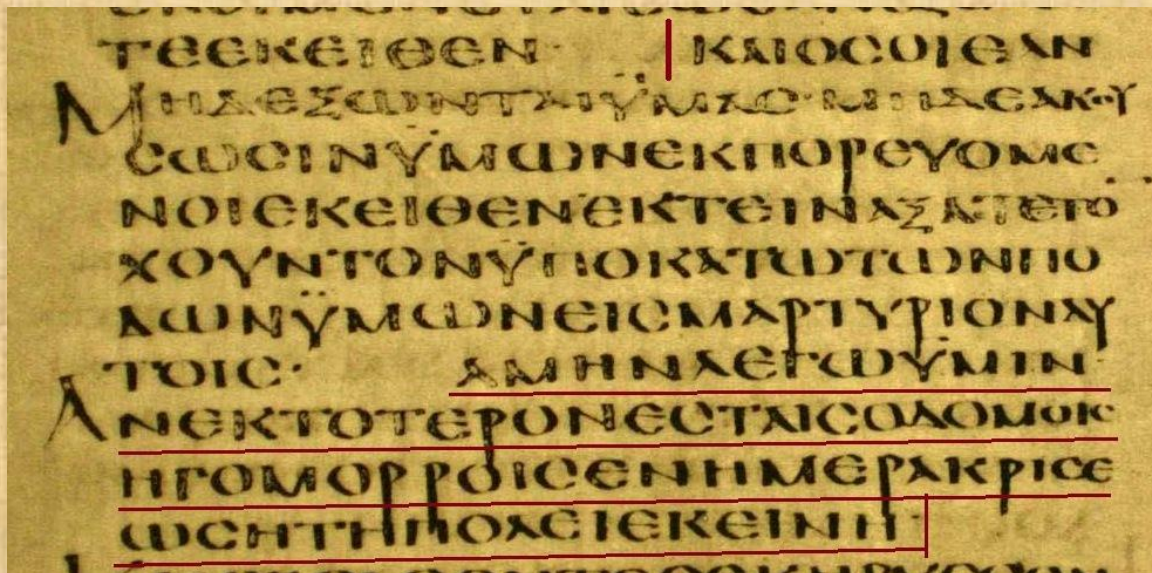 ΤΕΕΚΕΙΘΕΝ· ΚΑΙΟϹΟΙΕΑΝ
ΜΗΔΕΞΩΝΤΑΙΫΜΑϹ·ΜΗΔΕΑΚΟΥ
ϹΩϹΙΝΫΜΩΝΕΚΠΟΡΕΥΟΜΕ
ΝΟΙΕΚΕΙΘΕΝΕΚΤΕΙΝΑΞΑΤΕΤΟ
ΧΟΥΝΤΟΝΫΠΟΚΑΤΩΤΩΝΠΟ
ΔΩΝΫΜΩΝΕΙϹΜΑΡΤΥΡΙΟΝΑΥ
ΤΟΙϹ· ΑΜΗΝΛΕΓΩΫΜΙΝ
ΑΝΕΚΤΟΤΕΡΟΝΕϹΤΑΙϹΟΔΟΜΟΙϹ
ΗΓΟΜΟΡΡΟΙϹΕΝΗΜΕΡΑΚΡΙϹΕ
ΩϹΗΤΗΠΟΛΕΙΕΚΕΙΝΗ·